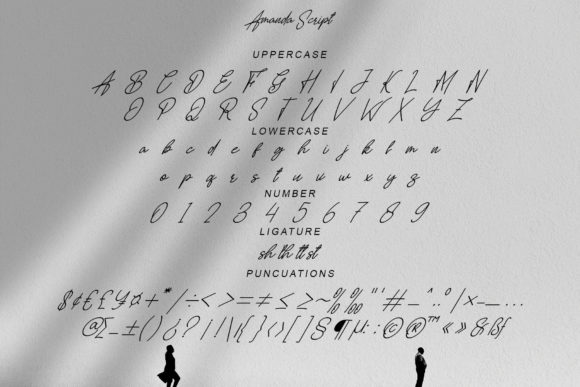 Amanda Script
UPPERCASE
A B C D E F G H I J K L M N
O P Q R S T U V W X Y Z
LOWERCASE
a b c d e f g h i j k l m n
o p q r s t u v w x y z
NUMBER
0 1 2 3 4 5 6 7 8 9
LIGATURE
sh th tt st
PUNCUATIONS
$ ¢ £ ₤ ¥ ¤ + * / ÷ < > = ≠ ≤ ≥ ~ % ‰ " ' # _ ^ .. ° | × - _ ...
@ ∑ _ ± ( ) ¿ ? / | \ { } ‹ › [ ] § ¶ µ : © ® ™ « » & ß ſ